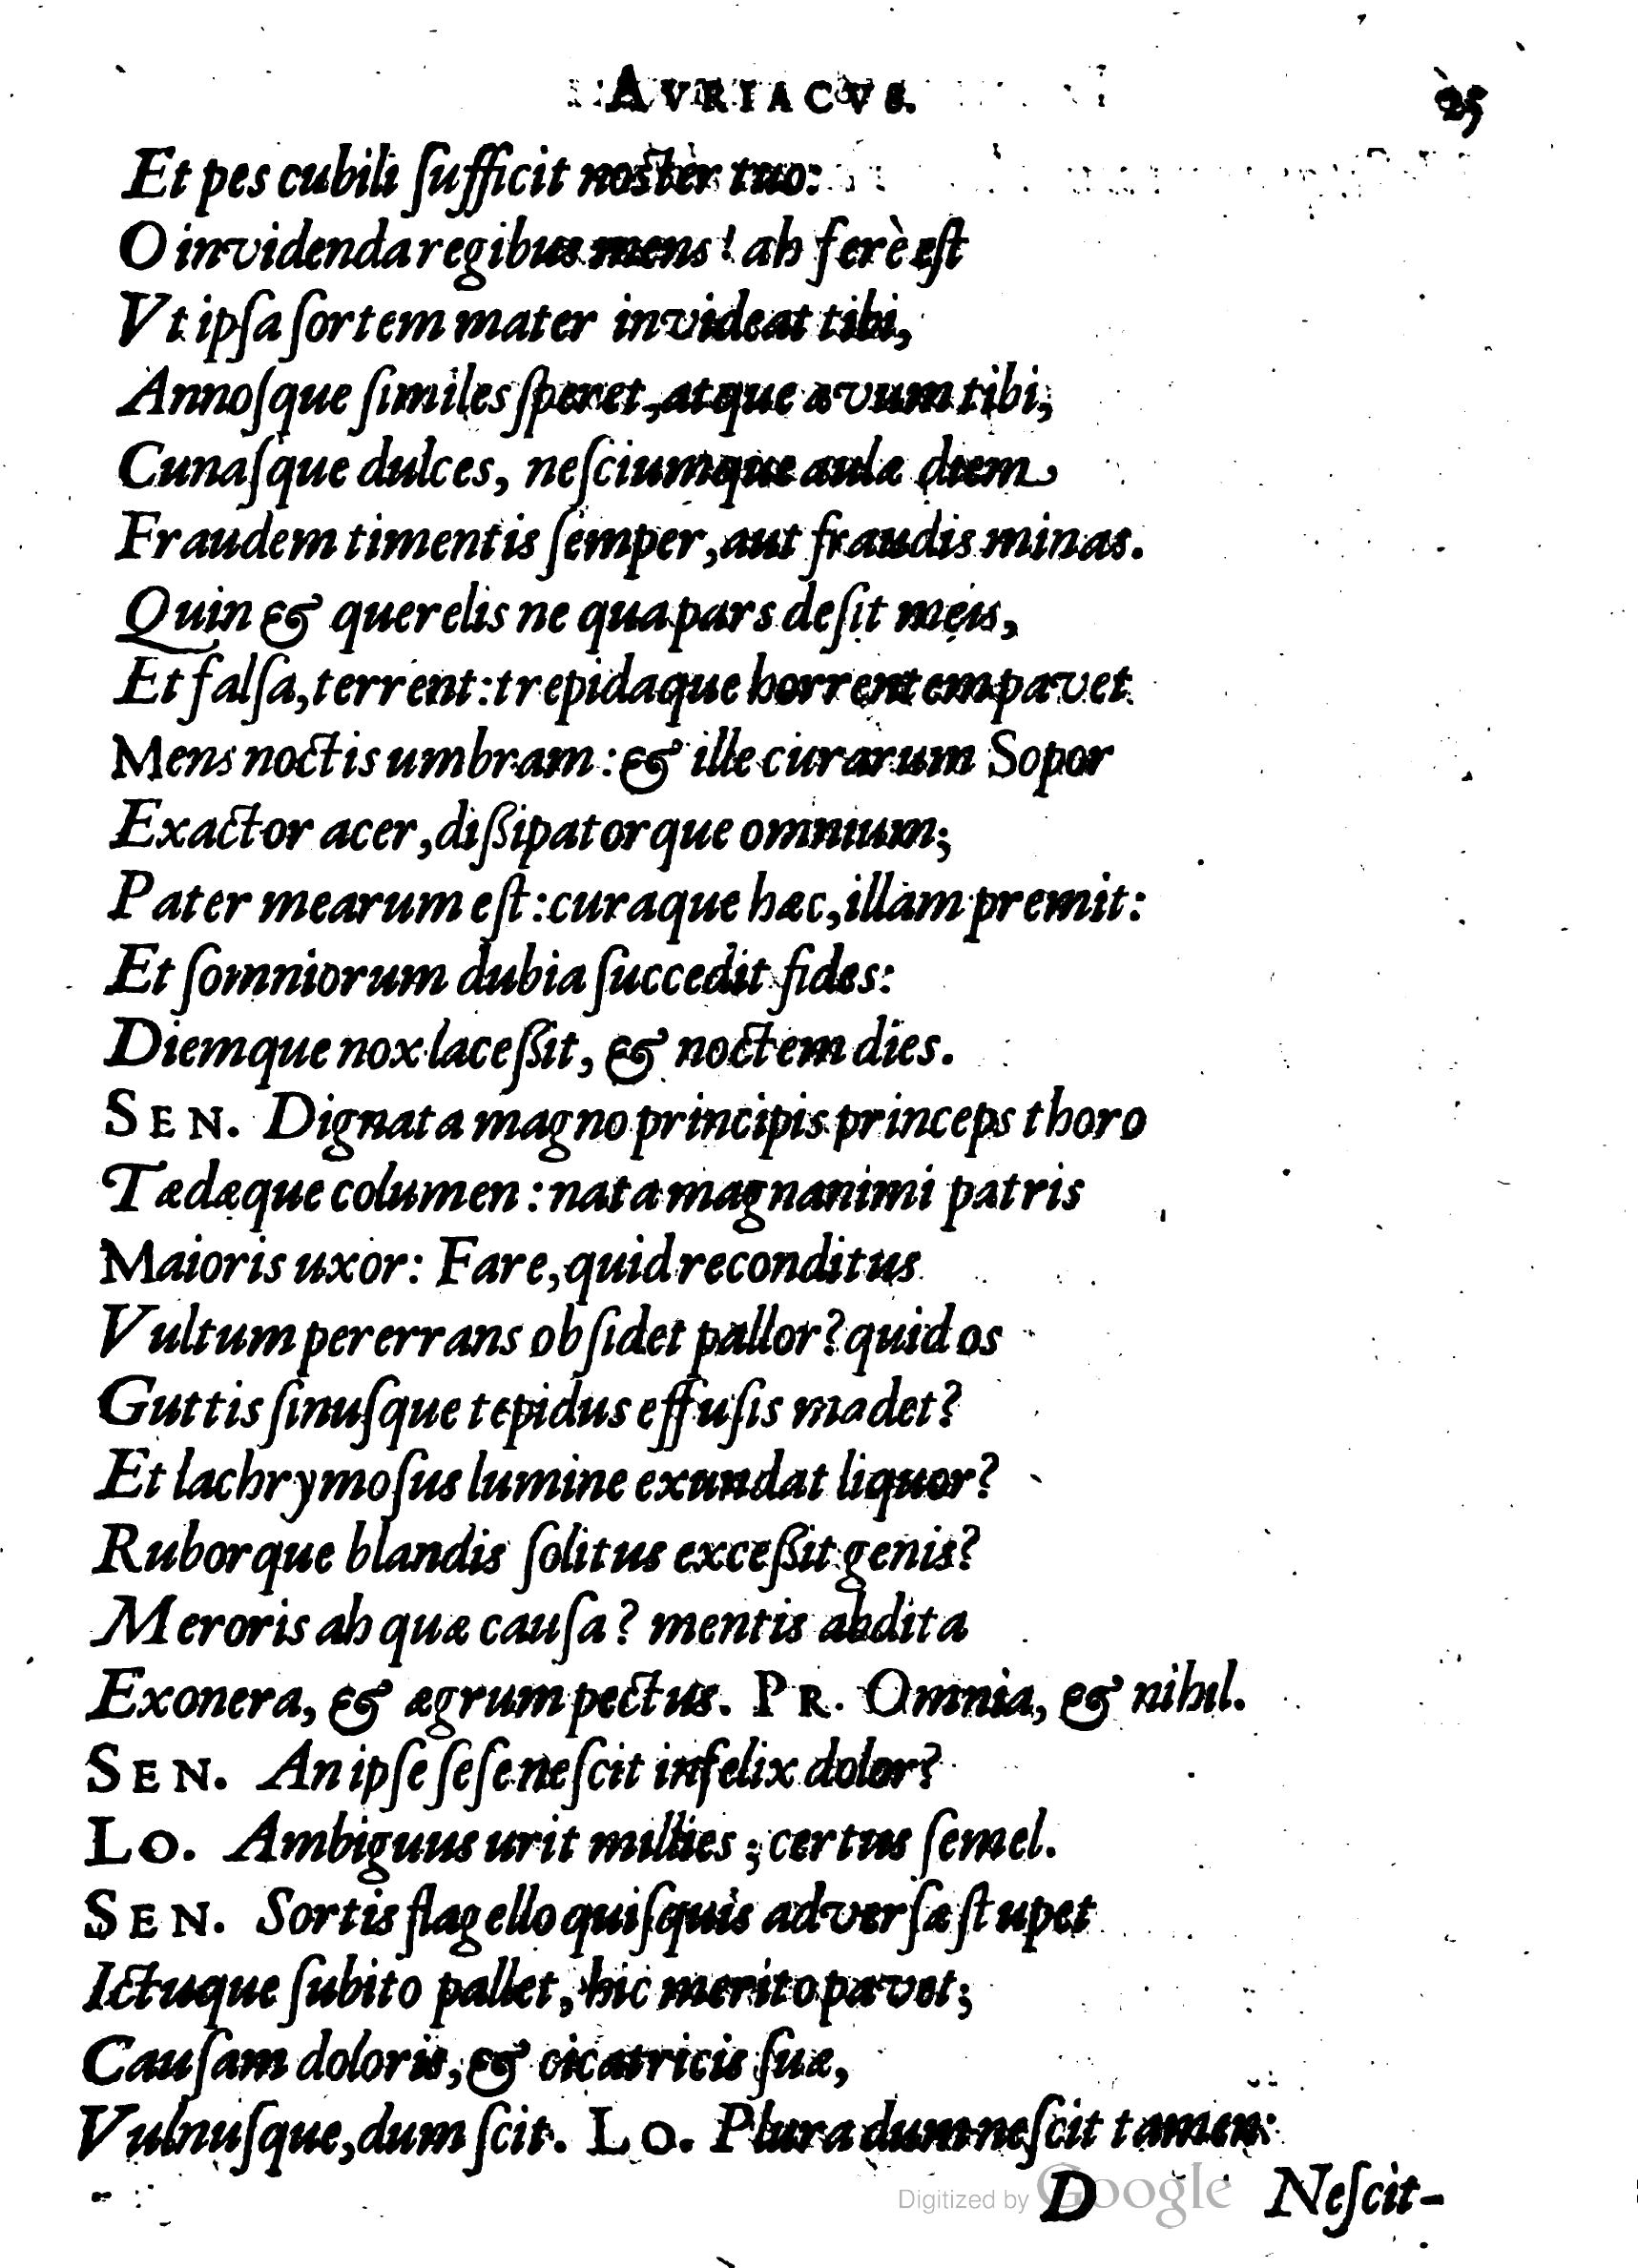 AVRIACVS. 25
Et pes cubili ſufficit noster tuo:
O invidenda regibus mens! ah ferè eſt
Vt ipſa ſortem mater invideat tibi,
Annoſque ſimiles ſperet, atque ævum tibi,
Cunaſque dulces, neſciumque aulæ diem
Fraudem timentis ſemper, aut fraudis minas.
Quin & querelis ne qua pars deſit meis,
Et falſa, terrent: trepidaque horrentem pavet
Mens noctis umbram: & ille curarum Sopor
Exactor acer, diſſipatorque omnium;
Pater mearum eſt: curaque hæc, illam premit:
Et ſomniorum dubia ſuccedit fides:
Diemque nox laceſſit, & noctem dies.
SEN. Dignata magno principis princeps thoro
Tædæque columen: nata magnanimi patris
Maioris uxor: Fare, quid reconditus
Vultum pererrans obſidet pallor? quid os
Guttis ſinuſque tepidus effuſis madet?
Et lachrymoſus lumine exundat liquor?
Ruborque blandis ſolitus exceſſit genis?
Meroris ah quæ cauſa? mentis abdita
Exonera, & ægrum pectus. PR. Omnia, & nihil.
SEN. An ipſe ſeſe neſcit infelix dolor?
LO. Ambiguus urit millies; certus ſemel.
SEN. Sortis flagello quiſquis adverſæ ſtupet
Ictuque ſubito pallet, hic merito pavet;
Cauſam doloris, & cicatricis ſuæ,
Vulnuſque, dum ſcit. LO. Plura dum neſcit tamen:
D Neſcit-
Digitized by Google